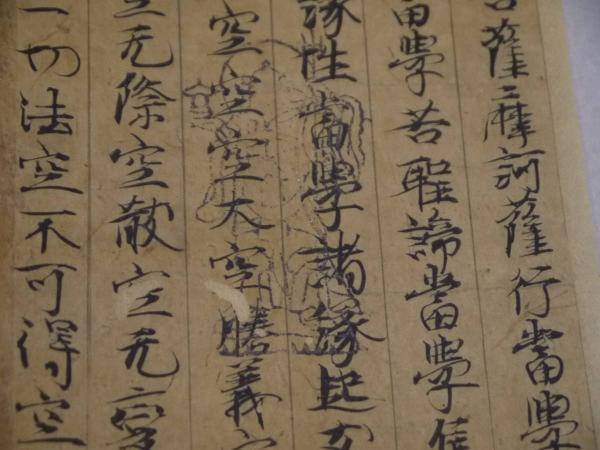 薩〻摩訶薩行當學
當學苦聖諦當學
緣性當學諸緣起
空空空大空勝義
无際空散空无
一切法空不可得空